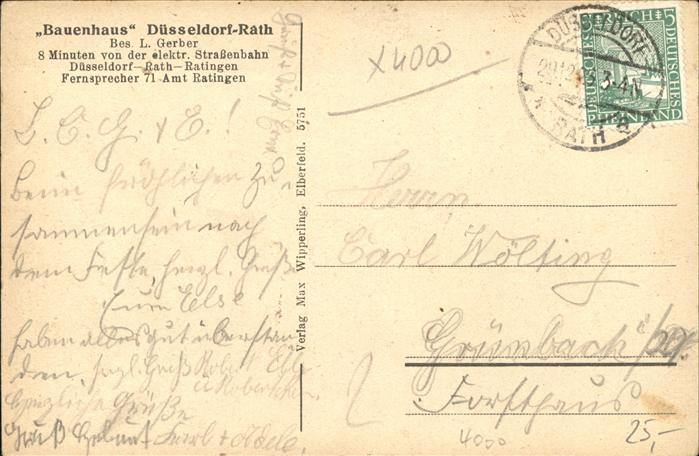 „Bauenhaus" Düsseldorf-Rath
Bes. L. Gerber
8 Minuten von der elektr. Straßenbahn
Düsseldorf—Rath—Ratingen
Fernsprecher 71 Amt Ratingen
L. C. G. & E.!
Beim fröhlichen Zu-
sammensein nach
dem Feste, herzl. Grüße
Eure Else
haben alles gut überstan
den, herzl. Gruß Robert
Herzliche Grüße
Gruß Karl + Adele.
Verlag Max Wipperling, Elberfeld. 5751
x4000
DÜSSELDORF
3-4N
RATH
5 DEUTSCHES REICH 5
RHEINLAND
Herrn
Carl Wölting
Grünbach
Forsthaus
4000
25,-